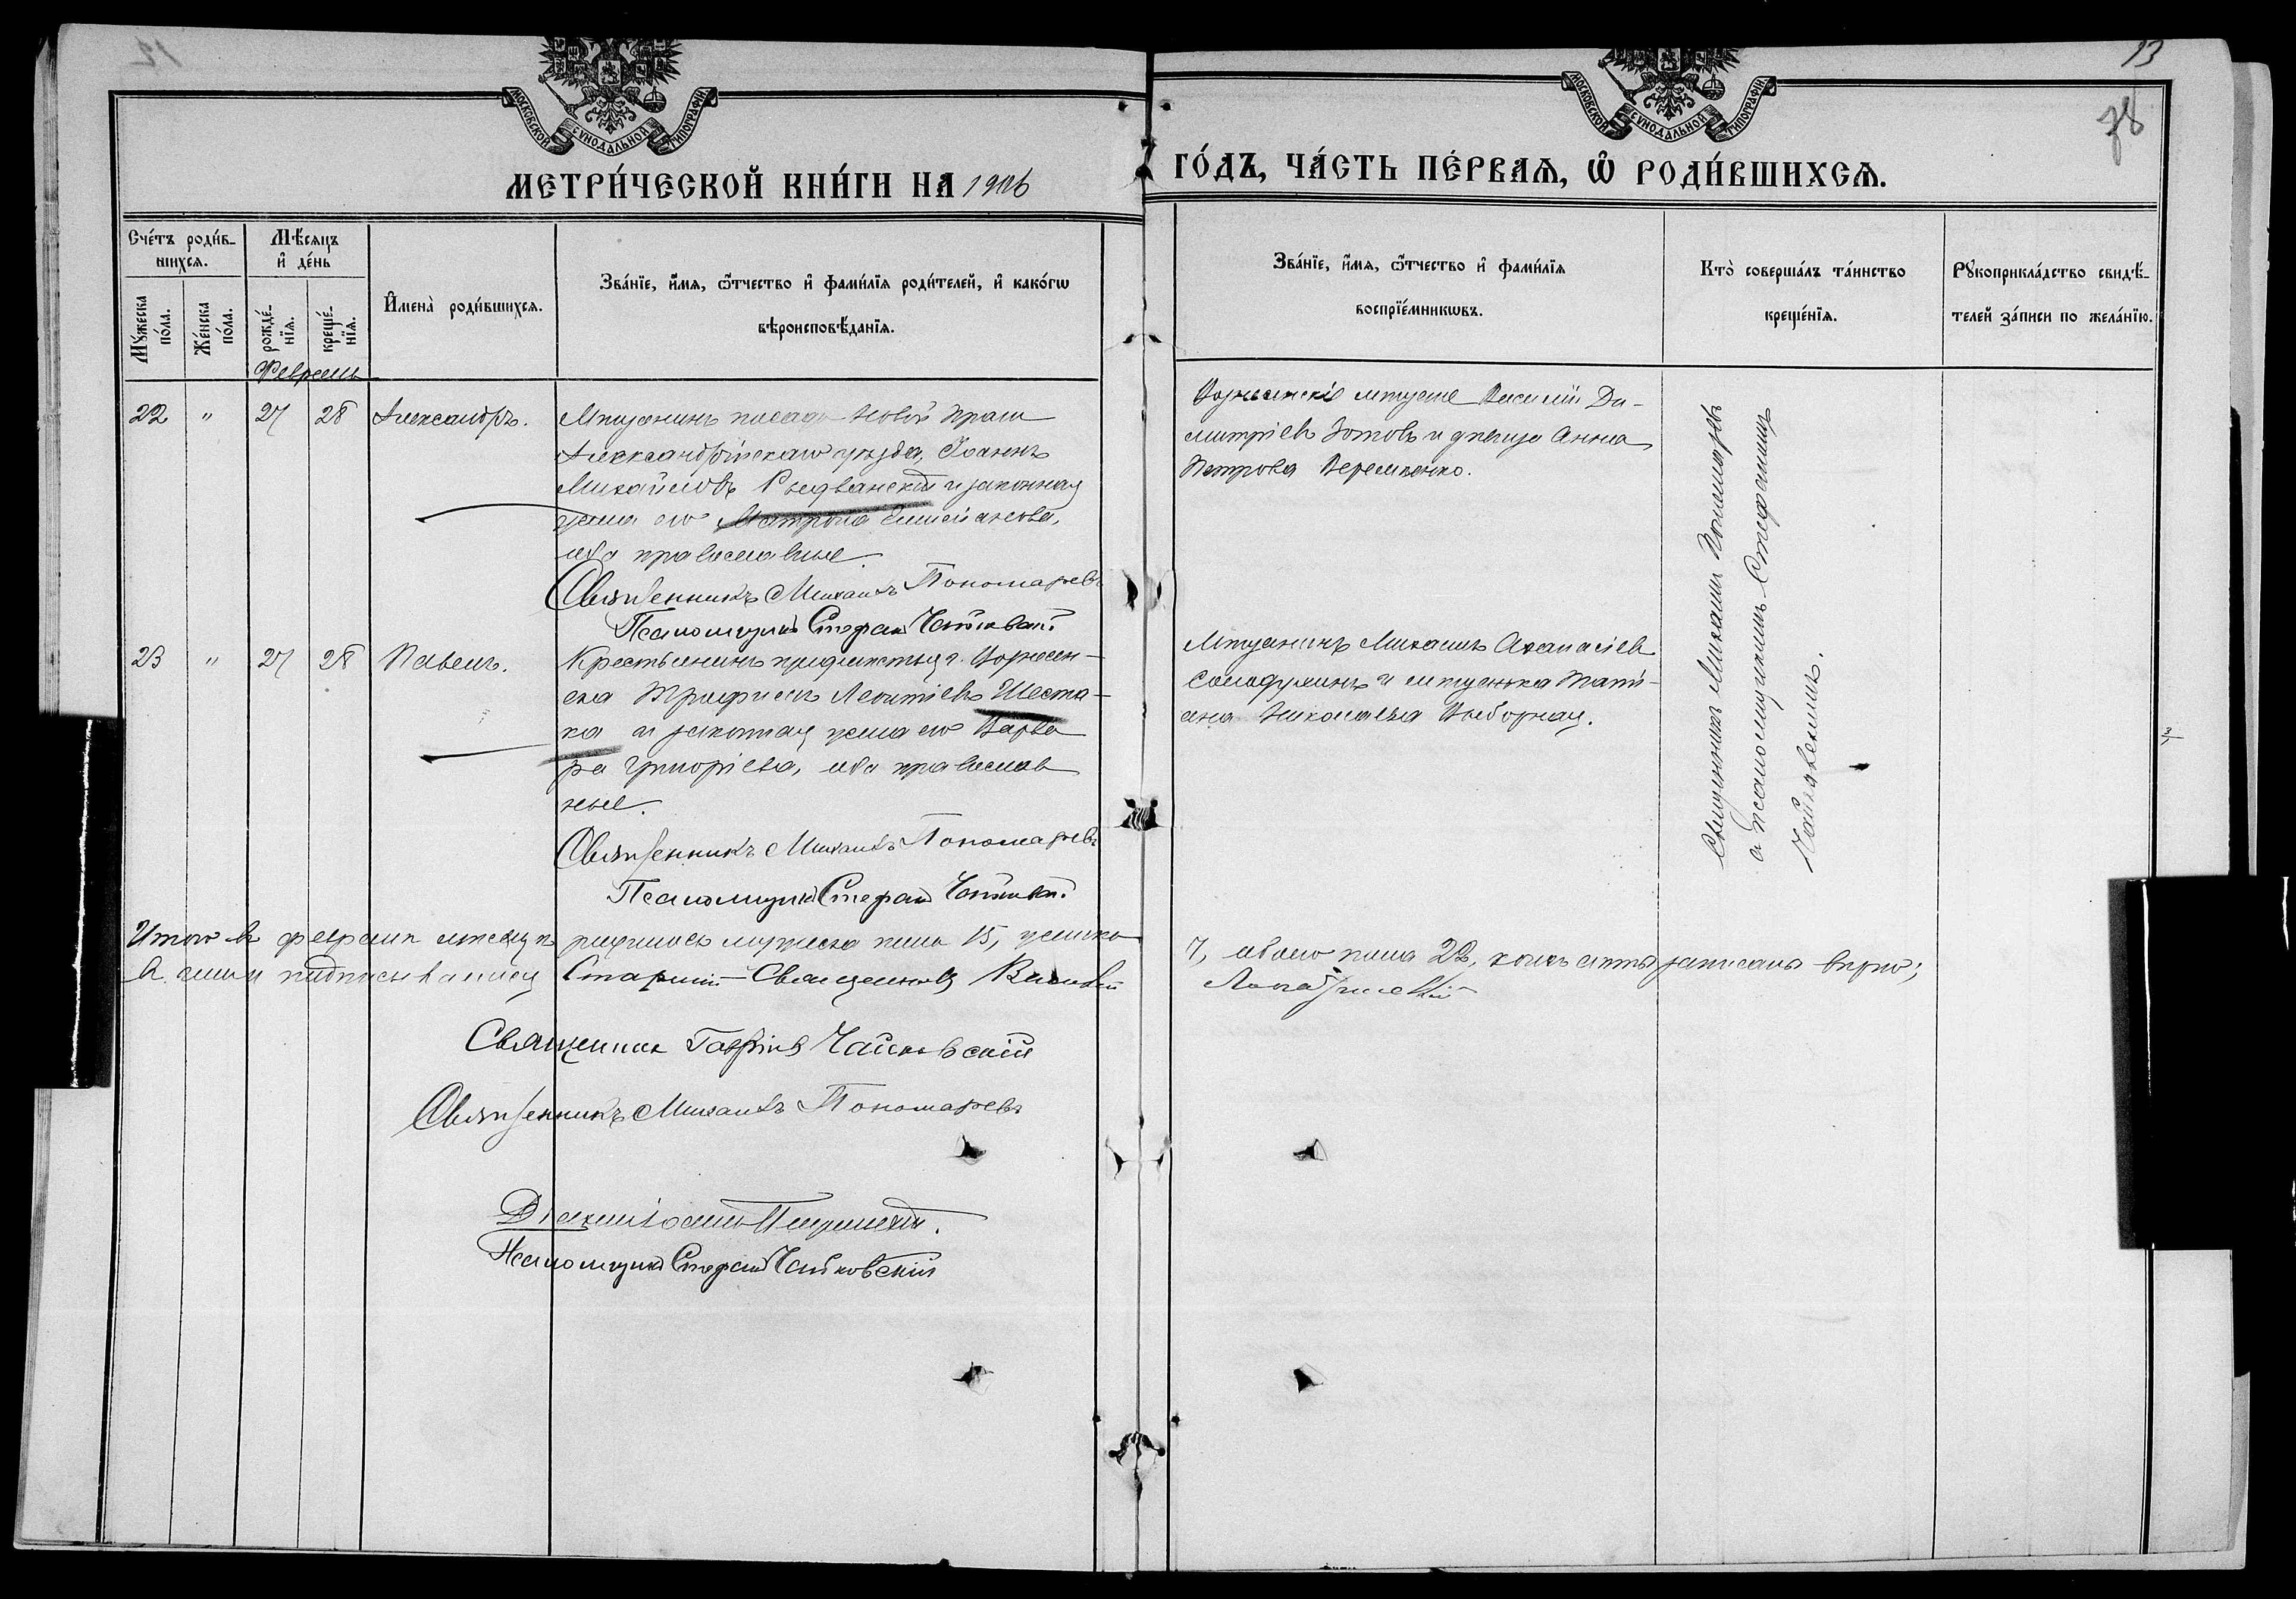 12
13
78
МОСКОВСКОЙ СѴНОДАЛЬНОЙ ТИПОГРАФІИ
МОСКОВСКОЙ СѴНОДАЛЬНОЙ ТИПОГРАФІИ
МЕТРИ́ЧЕСКОЙ КНИ́ГИ НА 1906
ГО́ДЪ, ЧА́СТЬ ПЕ́РВАѦ, Ѡ҆ РОДИ́ВШИХСѦ.
Сче́тъ роди́в-
шихсѧ.
Мꙋ́жеска по́ла.
Же́нска по́ла.
Мѣ́сѧцъ
и҆ де́нь
рожде́-
нїѧ.
креще́-
нїѧ.
И҆мена̀ роди́вшихсѧ.
Зва́нїе, и҆́мѧ, ѻ҆́тчество и҆ фами́лїѧ роди́телей, и҆ како́гѡ
вѣроисповѣ́данїѧ.
Зва́нїе, и҆́мѧ, ѻ҆́тчество и҆ фами́лїѧ
воспрїе́мникѡвъ.
Кто̀ соверша́лъ та́инство
креще́нїѧ.
Рꙋкоприкла́дство свидѣ́-
телей за́писи по жела́нїю.
Февраль
22 " 27 28 Александръ.
Мѣщанинъ посада Новой Праги
Александрійскаго уѣзда, Іоаннъ
Михайловъ и законная
жена его Матрона
оба православные.
Священникъ Михаилъ Пономаревъ
Псаломщикъ Стефанъ Чайковскій
Вознесенскіе мѣщане Василій Ди-
митріевъ Зотовъ и дѣвица Анна
Петрова Веремѣенко.
Священникъ Михаилъ Пономаревъ
съ псаломщикомъ Стефаномъ
Чайковскимъ.
23 " 27 28 Павелъ.
Крестьянинъ предмѣстья г. Вознесен-
ска Трифилъ Леонтіевъ Шеста-
ка и законная жена его Варва
ра Григоріева, оба православ
ные.
Священникъ Михаилъ Пономаревъ
Псаломщикъ Стефанъ Чайковскій
Мѣщанинъ Михаилъ Аѳанасіевъ
Солодухинъ и мѣщанка Тати-
ана Николаева Выборная.
Итого въ февралѣ мѣсяцѣ родилось мужеска пола 15, женска 7, обоего пола 22, записаны вѣрно;
въ чемъ и подписываемся Старшій Священникъ
Священникъ Гавріилъ Чайковскій
Священникъ Михаилъ Пономаревъ
Діаконъ Іоаннъ
Псаломщикъ Стефанъ Чайковскій